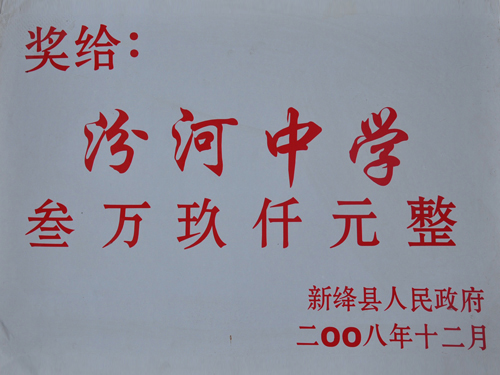 奖给：
汾河中学
叁万玖仟元整
新绛县人民政府
二OO八年十二月